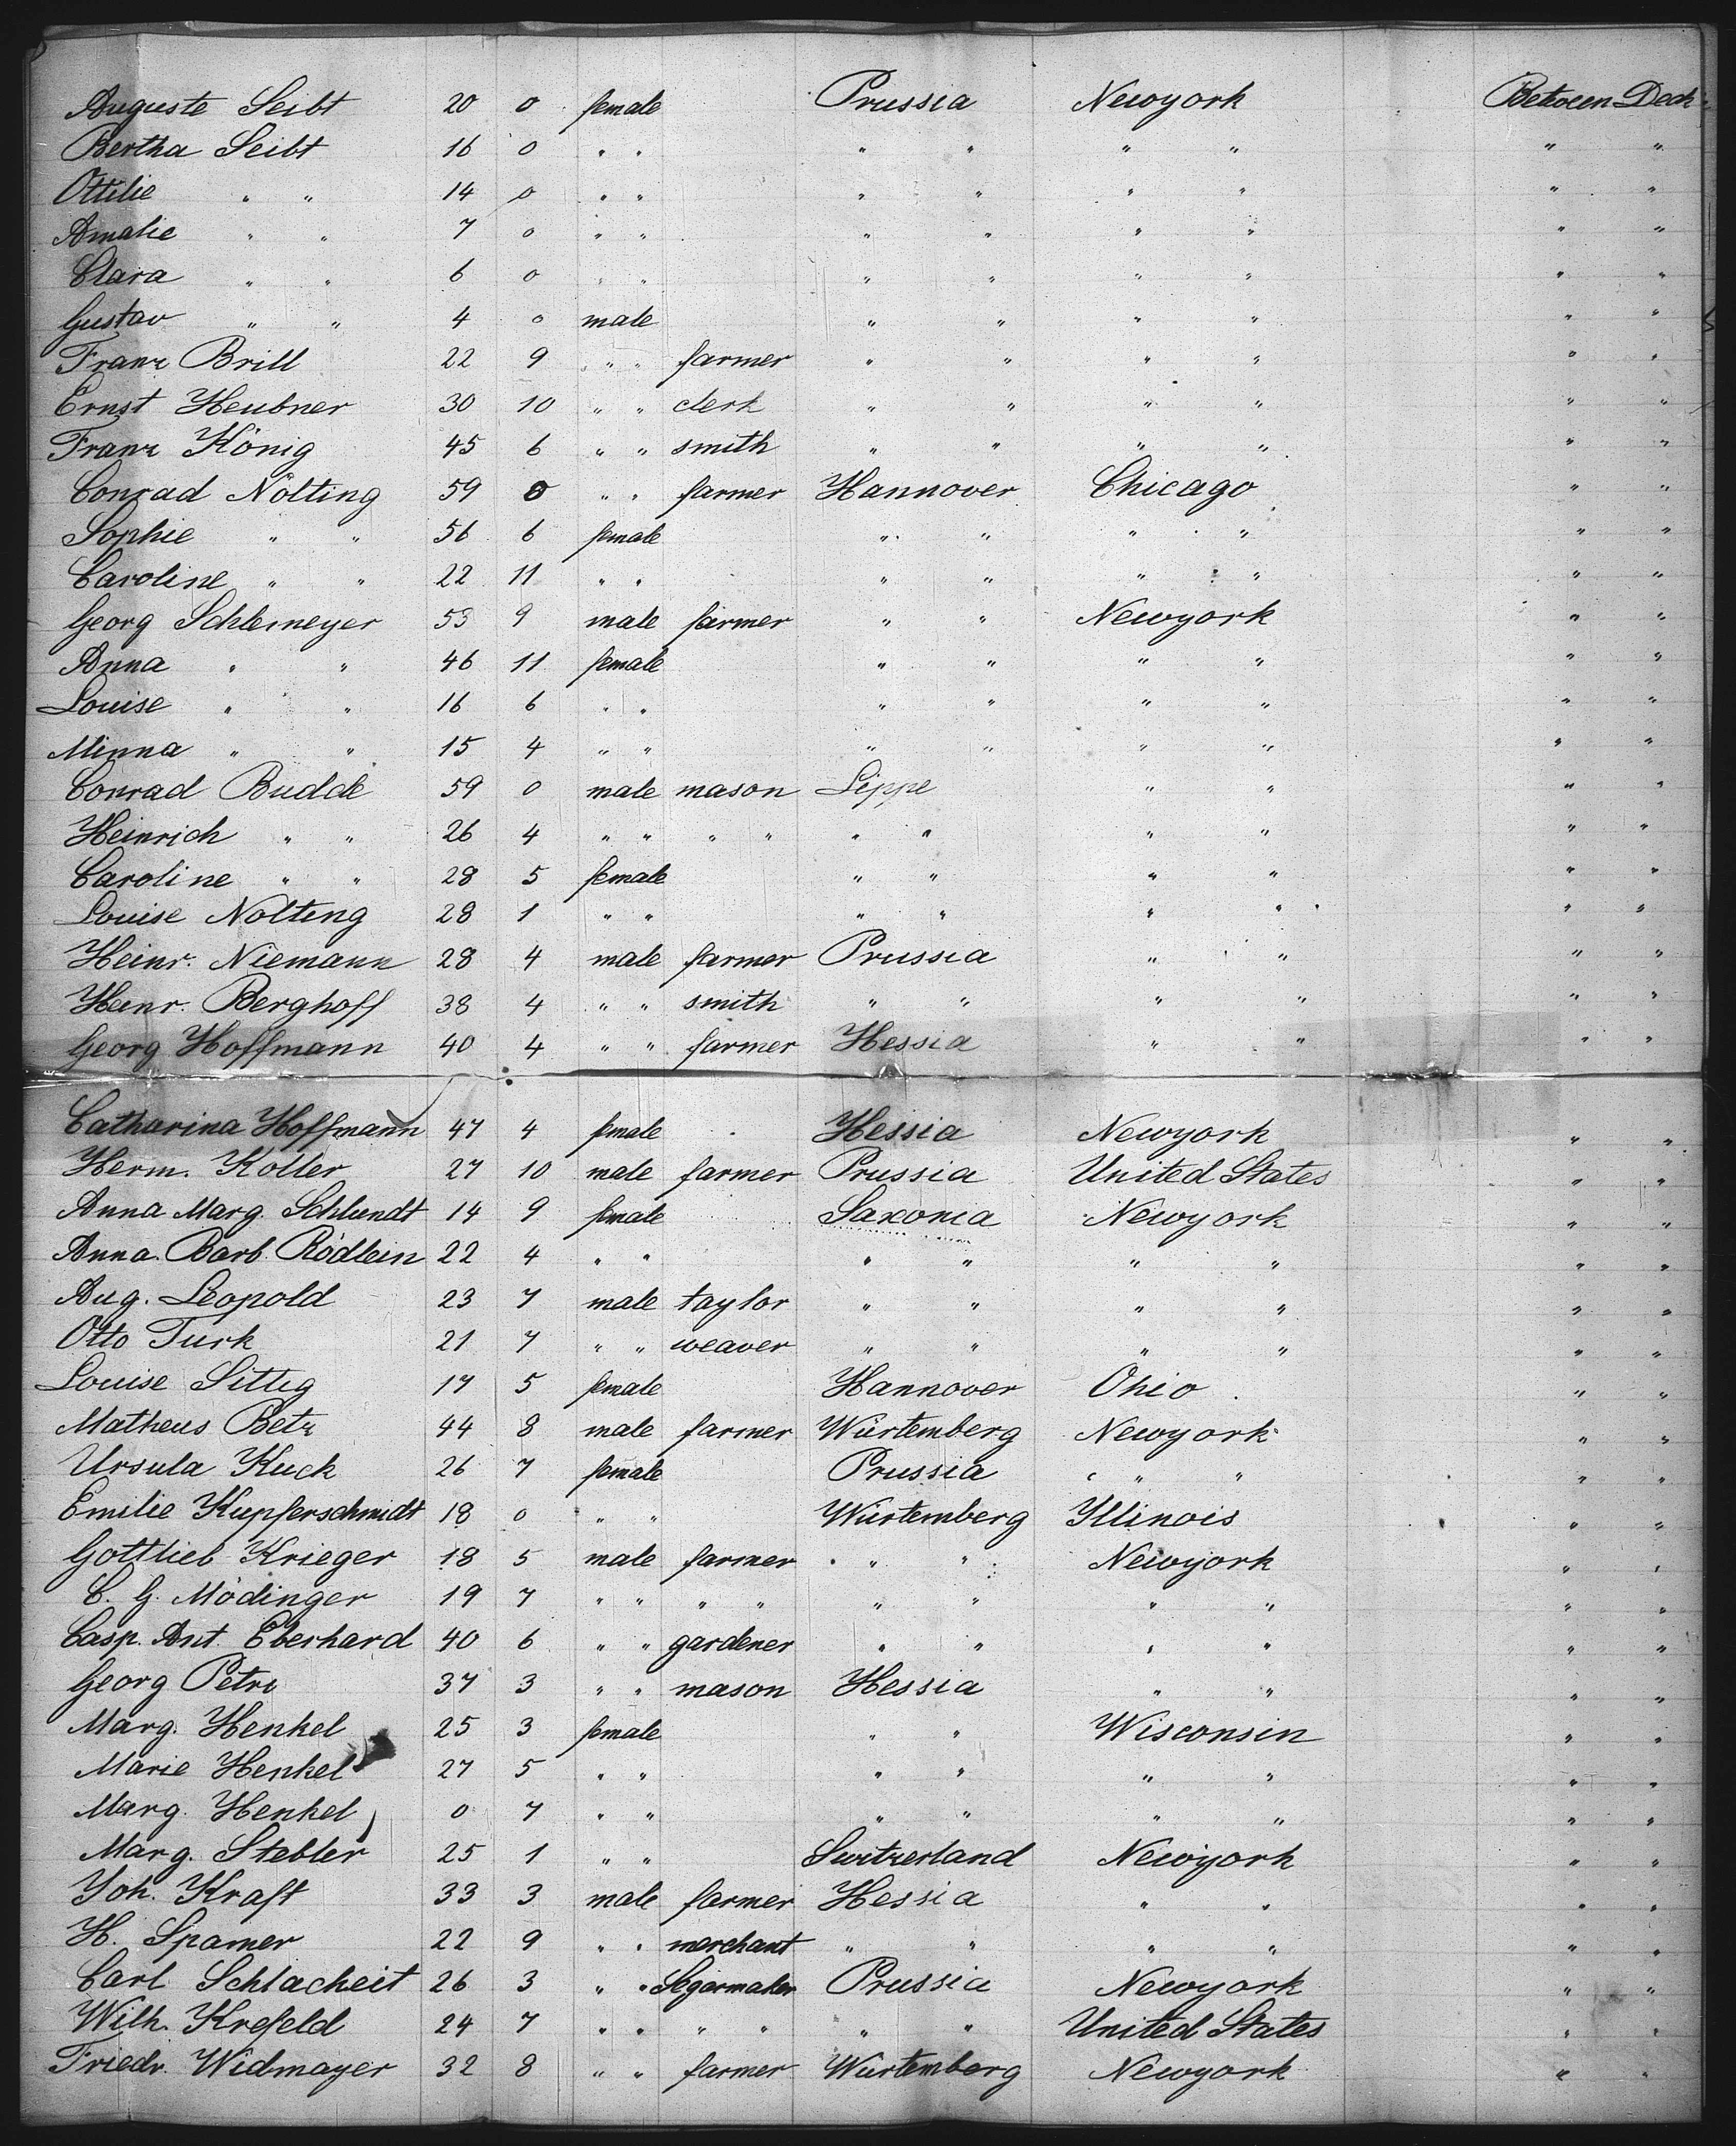 Auguste Seibt 20 0 female Prussia Newyork Between Deck
Bertha Seibt 16 0 " " " " " " " "
Ottilie " " 14 0 " " " " " " " "
Amalie " " 7 0 " " " " " " " "
Clara " " 6 0 " " " " " " " "
Gustav " " 4 0 male " " " " " "
Franz Brill 22 9 " " farmer " " " " " "
Ernst Heubner 30 10 " " clerk " " " " " "
Franz König 45 6 " " smith " " " " " "
Conrad Nölting 59 0 " " farmer Hannover Chicago " "
Sophie " " 56 6 female " " " " " "
Caroline " " 22 11 " " " " " " " "
Georg Schlemeyer 53 9 male farmer " " Newyork " "
Anna " " 46 11 female " " " " " "
Louise " " 16 6 " " " " " " " "
Minna " " 15 4 " " " " " " " "
Conrad Budde 59 0 male mason Lippe " " " "
Heinrich " " 26 4 " " " " " " " " " "
Caroline " " 28 5 female " " " " " "
Louise Nolting 28 1 " " " " " " " "
Heinr. Niemann 28 4 male farmer Prussia " " " "
Heinr. Berghoff 38 4 " " smith " " " " " "
Georg Hoffmann 40 4 " " farmer Hessia " " " "
Catharina Hoffmann 47 4 female Hessia Newyork " "
Herm. Koller 27 10 male farmer Prussia United States " "
Anna Marg. Schlundt 14 9 female Saxonia Newyork " "
Anna Barb. Rödlein 22 4 " " " " " " " "
Aug. Leopold 23 7 male taylor " " " " " "
Otto Turk 21 7 " " weaver " " " " " "
Louise Sittig 17 5 female Hannover Ohio " "
Matheus Betz 44 8 male farmer Würtemberg Newyork " "
Ursula Kuck 26 7 female Prussia " " " "
Emilie Kupferschmidt 18 0 " " Würtemberg Illinois " "
Gottlieb Krieger 18 5 male farmer " " Newyork " "
C. G. Mödinger 19 7 " " " " " " " " " "
Casp. Ant. Eberhard 40 6 " " gardener " " " " " "
Georg Petri 37 3 " " mason Hessia " " " "
Marg. Henkel 25 3 female " " Wisconsin " "
Marie Henkel 27 5 " " " " " " " "
Marg. Henkel 0 7 " " " " " " " "
Marg. Stebler 25 1 " " Switzerland Newyork " "
Joh. Kraft 33 3 male farmer Hessia " " " "
H. Spamer 22 9 " " merchant " " " " " "
Carl Schlacheit 26 3 " " Segarmaker Prussia Newyork " "
Wilh. Krefeld 24 7 " " " " " " United States " "
Friedr. Widmayer 32 8 " " farmer Würtemberg Newyork " "